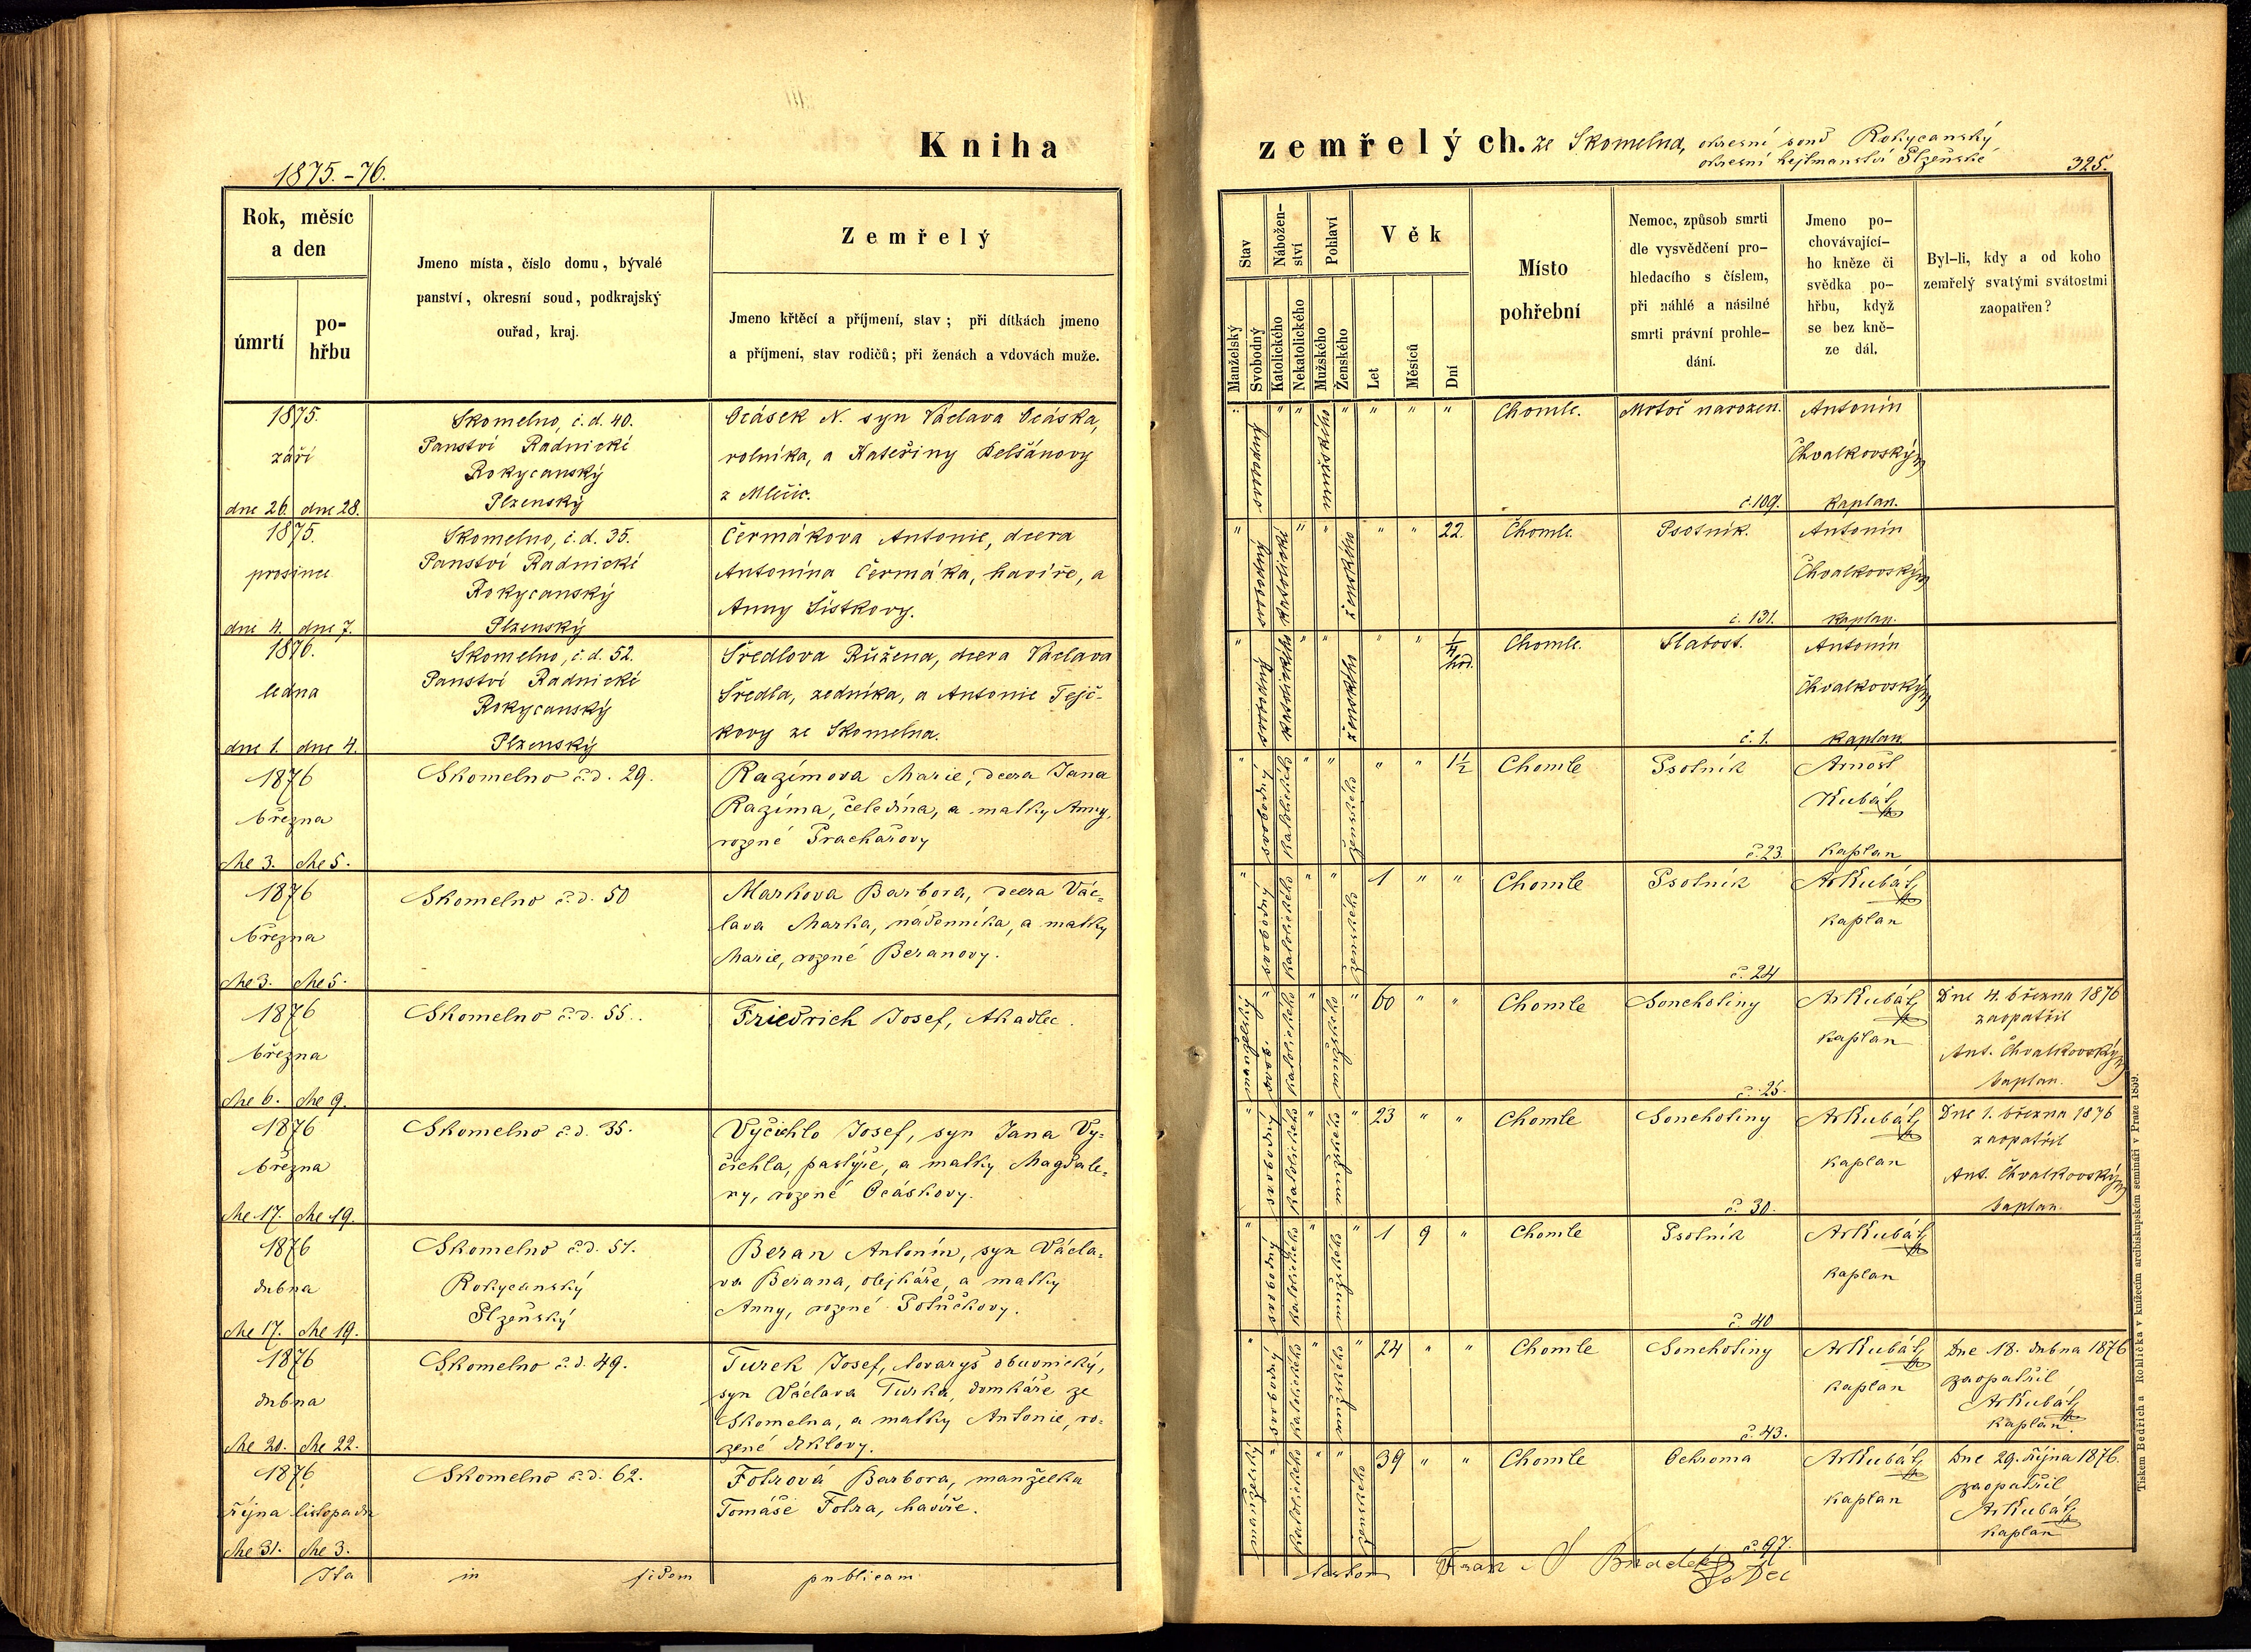 Kniha zemřelých. ze Skomelna, okresní soud Rokycanský
okresní hejtmanství Plzeňské
1875.-76.
325.
Rok, měsíc
a den
úmrtí
po-
hřbu
Jmeno místa, číslo domu, bývalé
panství, okresní soud, podkrajský
ouřad, kraj.
Zemřelý
Jmeno křtěcí a příjmení, stav; při dítkách jmeno
a příjmení, stav rodičů; při ženách a vdovách muže.
Stav
Manželský
Svobodný
Nábožen-
ství
Katolického
Nekatolického
Pohlaví
Mužského
Ženského
Věk
Let
Měsíců
Dní
Místo
pohřební
Nemoc, způsob smrti
dle vysvědčení pro-
hledacího s číslem,
při náhlé a násilné
smrti právní prohle-
dání.
Jmeno po-
chovávající-
ho kněze či
svědka po-
hřbu, když
se bez kně-
ze dál.
Byl-li, kdy a od koho
zemřelý svatými svátostmi
zaopatřen?
1875.
září
dne 26. dne 28.
Skomelno, č.d. 40.
Panství Radnické
Rokycanský
Plzenský
Ocásek N. syn Václava Ocáska,
rolníka, a Kateřiny Pelšánovy
z Mlečic.
" svobodný " " mužského " " " "
Chomle.
Mrtvě narozen.
č. 109.
Antonín
Chvalkovský
kaplan.
1875.
prosince
dne 4. dne 7.
Skomelno, č.d. 35.
Panství Radnické
Rokycanský
Plzenský
Čermákova Antonie, dcera
Antonína Čermáka, havíře, a
Anny Šístkovy.
" svobodný katolické " " ženského " " 22.
Chomle.
Psotník.
č. 131.
Antonín
Chvalkovský
kaplan.
1876.
ledna
dne 1. dne 4.
Skomelno, č.d. 52.
Panství Radnické
Rokycanský
Plzenský
Šredlova Růžena, dcera Václava
Šredla, zedníka, a Antonie Tejč-
kovy ze Skomelna.
" svobodný katolického " " ženského " " 1/4 hod.
Chomle.
Slabost.
č. 1.
Antonín
Chvalkovský
kaplan
1876
března
dne 3. dne 5.
Skomelno č.d. 29.
Razímova Marie, dcera Jana
Razíma, čeledína, a matky Anny,
rozené Prachařovy
" svobodný katolického " " ženského " " 1½
Chomle
Psotník
č. 23.
Arnošt
Kubát,
kaplan
1876
března
dne 3. dne 5.
Skomelno č.d. 50
Markova Barbora, dcera Vác-
lava Marka, nádenníka, a matky
Marie, rozené Beranovy.
" svobodný katolického " " ženského 1 " "
Chomle
Psotník
č. 24
Ar Kubát,
kaplan
1876
března
dne 6. dne 9.
Skomelno č.d. 55.
Friedrich Josef, tkadlec.
manželský " katolického " mužského " 60 " "
Chomle
Souchotiny
č. 25.
Ar Kubát,
kaplan
Dne 4. března 1876
zaopatřil
Ant. Chvalkovský
kaplan.
1876
března
dne 17. dne 19.
Skomelno č.d. 35.
Vyčichlo Josef, syn Jana Vy-
čichla, pastýře, a matky Magdale-
ny, rozené Ocáskovy.
" svobodný katolického " mužského " 23 " "
Chomle
Souchotiny
č. 30.
Ar Kubát,
kaplan
Dne 1. března 1876
zaopatřil
Ant. Chvalkovský
kaplan.
1876
dubna
dne 17. dne 19.
Skomelno č.d. 51.
Rokycanský
Plzeňský
Beran Antonín, syn Václa-
va Berana, olejkáře, a matky
Anny, rozené Potůčkovy.
" svobodný katolického " mužského " 1 9 "
Chomle
Psotník
č. 40
Ar Kubát,
kaplan
1876
dubna
dne 20. dne 22.
Skomelno č.d. 49.
Turek Josef, tovaryš obuvnický,
syn Václava Turka, domkáře ze
Skomelna, a matky Antonie, ro-
zené
" svobodný katolického " mužského " 24 " "
Chomle
Souchotiny
č. 43.
Ar Kubát,
kaplan
Dne 18. dubna 1876
zaopatřil
Ar Kubát,
kaplan.
1876
října listopadu
dne 31. dne 3.
Skomelno č.d. 62.
Fotrová Barbora, manželka
Tomáše Fotra, havíře.
manželský " katolického " " ženského 39 " "
Chomle
Ochroma
č. 97.
Ar Kubát,
kaplan
Dne 29. října 1876.
zaopatřil
Ar Kubát,
kaplan
Ita in fidem publicam
Tiskem Bedřicha Rohlíčka v knížecím arcibiskupském semináři v Praze 1859.